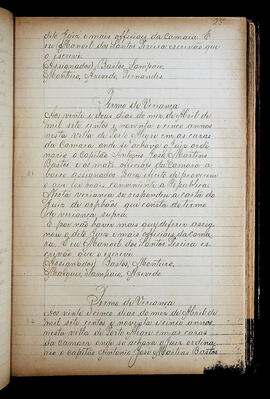 25
dito Juiz e mais officiaes da camara. E
eu Manoel dos Santos Pereira escrivão que
o escrevi
Assignados) Bastos, Sampaio,
Monteiro, Azevedo, Fernandes
Termo de Veriança
Aos vinte e dous dias do mez de Abril de
mil sete centos e noventa e cinco annos
nesta villa de Porto Alegre em as casas
da camara onde se achava o Juiz ordi
nario o capitão Antonio José Martins
Bastos e os mais officiaes da camara a
baixo assignados para effeito de proverem
o que for mais conveniente a Republica
Nesta veriança se respondeu a carta do
Juiz de orphãos que consta do termo
de veriança supra.
E por não haver mais que deferir assig
nou o dito Juiz e mais officiaes da cama
ra. E eu Manoel dos Santos Pereira es
crivão que o escrevi
Assignados) Bastos, Monteiro,
Sampaio, Azevedo
Termo de Veriança
Aos vinte e cinco dias do mez de Abril de
mil sete centos e noventa e cinco annos
nesta villa de Porto Alegre em as casas
da camara onde se achava o Juiz ordina
rio o capitão Antonio José Martins Bastos